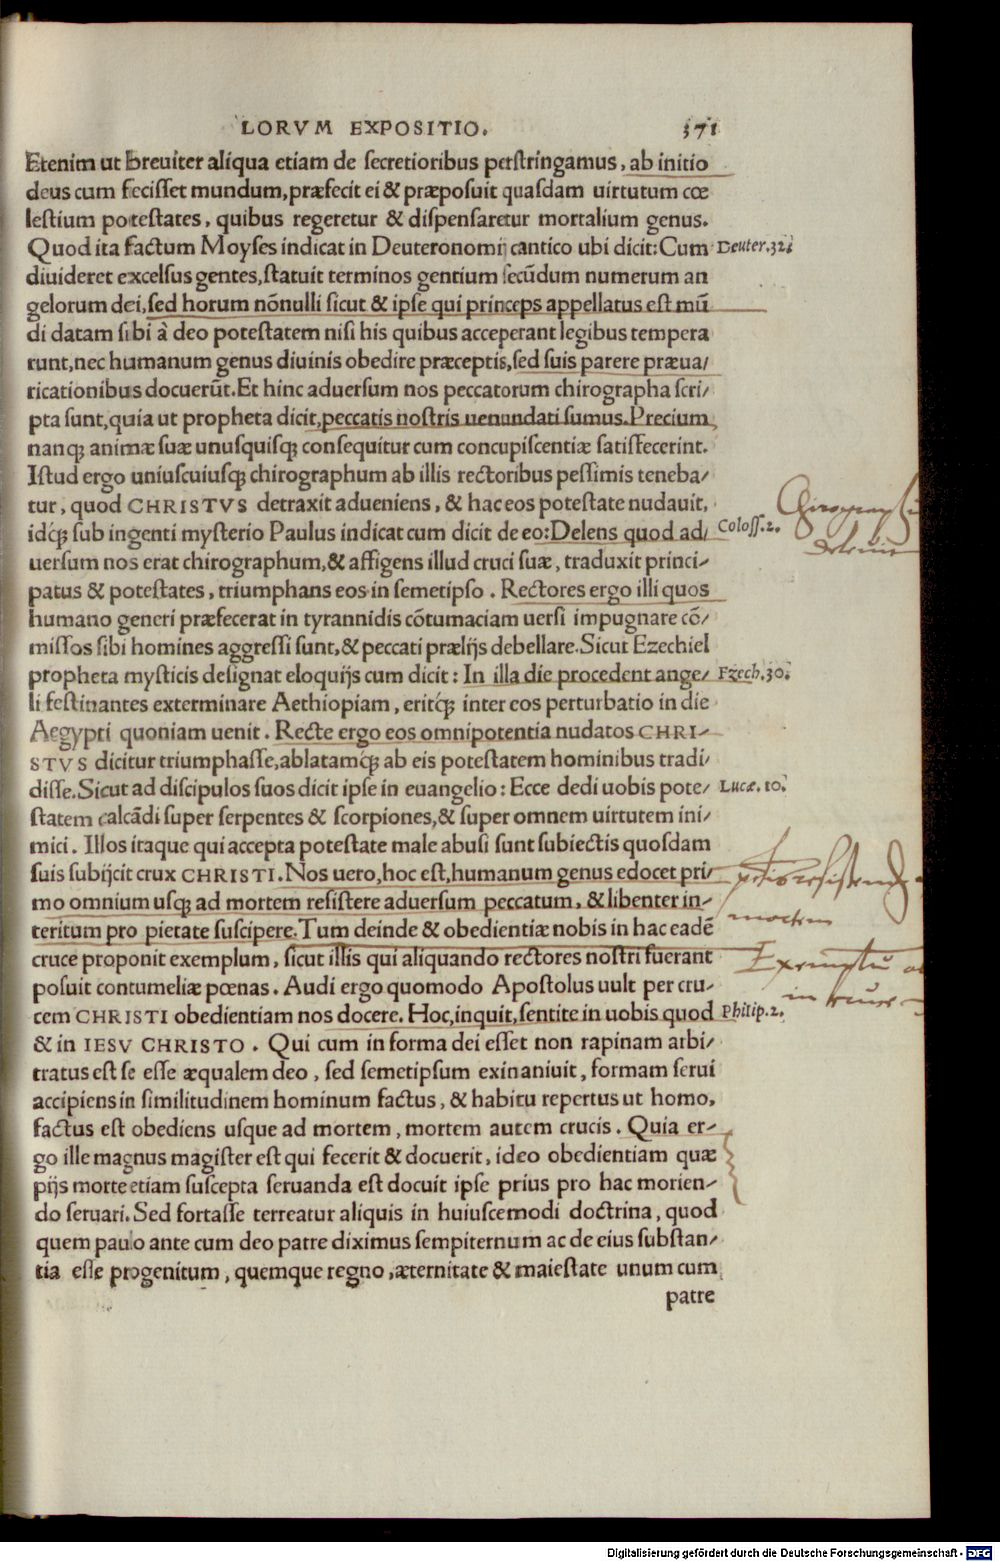 LORVM EXPOSITIO. 371
Etenim ut breuiter aliqua etiam de secretioribus perstringamus, ab initio
deus cum fecisset mundum, præfecit ei & præposuit quasdam uirtutum cœ
lestium potestates, quibus regeretur & dispensaretur mortalium genus.
Quod ita factum Moyses indicat in Deuteronomij cantico ubi dicit: Cum Deuter.32.
diuideret excelsus gentes, statuit terminos gentium secũdum numerum an
gelorum dei, sed horum nõnulli sicut & ipse qui princeps appellatus est mũ
di datam sibi à deo potestatem nisi his quibus acceperant legibus tempera
runt, nec humanum genus diuinis obedire præceptis, sed suis parere præua/
ricationibus docuerũt. Et hinc aduersum nos peccatorum chirographa scri/
pta sunt, quia ut propheta dicit, peccatis nostris uenundati sumus. Precium
nanq; animæ suæ unusquisq; consequitur cum concupiscentiæ satisfecerint.
Istud ergo uniuscuiusq; chirographum ab illis rectoribus pessimis teneba/
tur, quod CHRISTVS detraxit adueniens, & hac eos potestate nudauit,
idq́; sub ingenti mysterio Paulus indicat cum dicit de eo: Delens quod ad/ Coloss.2.
uersum nos erat chirographum, & affigens illud cruci suæ, traduxit princi/
patus & potestates, triumphans eos in semetipso. Rectores ergo illi quos
humano generi præfecerat in tyrannidis cõtumaciam uersi impugnare cõ/
missos sibi homines aggressi sunt, & peccati prælijs debellare. Sicut Ezechiel
propheta mysticis designat eloquijs cum dicit: In illa die procedent ange/ Ezech.30.
li festinantes exterminare Aethiopiam, eritq́; inter eos perturbatio in die
Aegypti quoniam uenit. Recte ergo eos omnipotentia nudatos CHRI/
STVS dicitur triumphasse, ablatamq́; ab eis potestatem hominibus tradi/
disse. Sicut ad discipulos suos dicit ipse in euangelio: Ecce dedi uobis pote/ Lucæ.10.
statem calcãdi super serpentes & scorpiones, & super omnem uirtutem ini/
mici. Illos itaque qui accepta potestate male abusi sunt subiectis quosdam
suis subijcit crux CHRISTI. Nos uero, hoc est, humanum genus edocet pri/
mo omnium usq; ad mortem resistere aduersum peccatum, & libenter in/
teritum pro pietate suscipere. Tum deinde & obedientiæ nobis in hac eadẽ
cruce proponit exemplum, sicut illis qui aliquando rectores nostri fuerant
posuit contumeliæ pœnas. Audi ergo quomodo Apostolus uult per cru/
cem CHRISTI obedientiam nos docere. Hoc, inquit, sentite in uobis quod Philip.2.
& in IESV CHRISTO. Qui cum in forma dei esset non rapinam arbi/
tratus est se esse æqualem deo, sed semetipsum exinaniuit, formam serui
accipiens in similitudinem hominum factus, & habitu repertus ut homo,
factus est obediens usque ad mortem, mortem autem crucis. Quia er/
go ille magnus magister est qui fecerit & docuerit, ideo obedientiam quæ
pijs morte etiam suscepta seruanda est docuit ipse prius pro hac morien/
do seruari. Sed fortasse terreatur aliquis in huiuscemodi doctrina, quod
quem paulo ante cum deo patre diximus sempiternum ac de eius substan/
tia esse progenitum, quemque regno, æternitate & maiestate unum cum
patre
mortem
Exemplũ
Digitalisierung gefördert durch die Deutsche Forschungsgemeinschaft - DFG